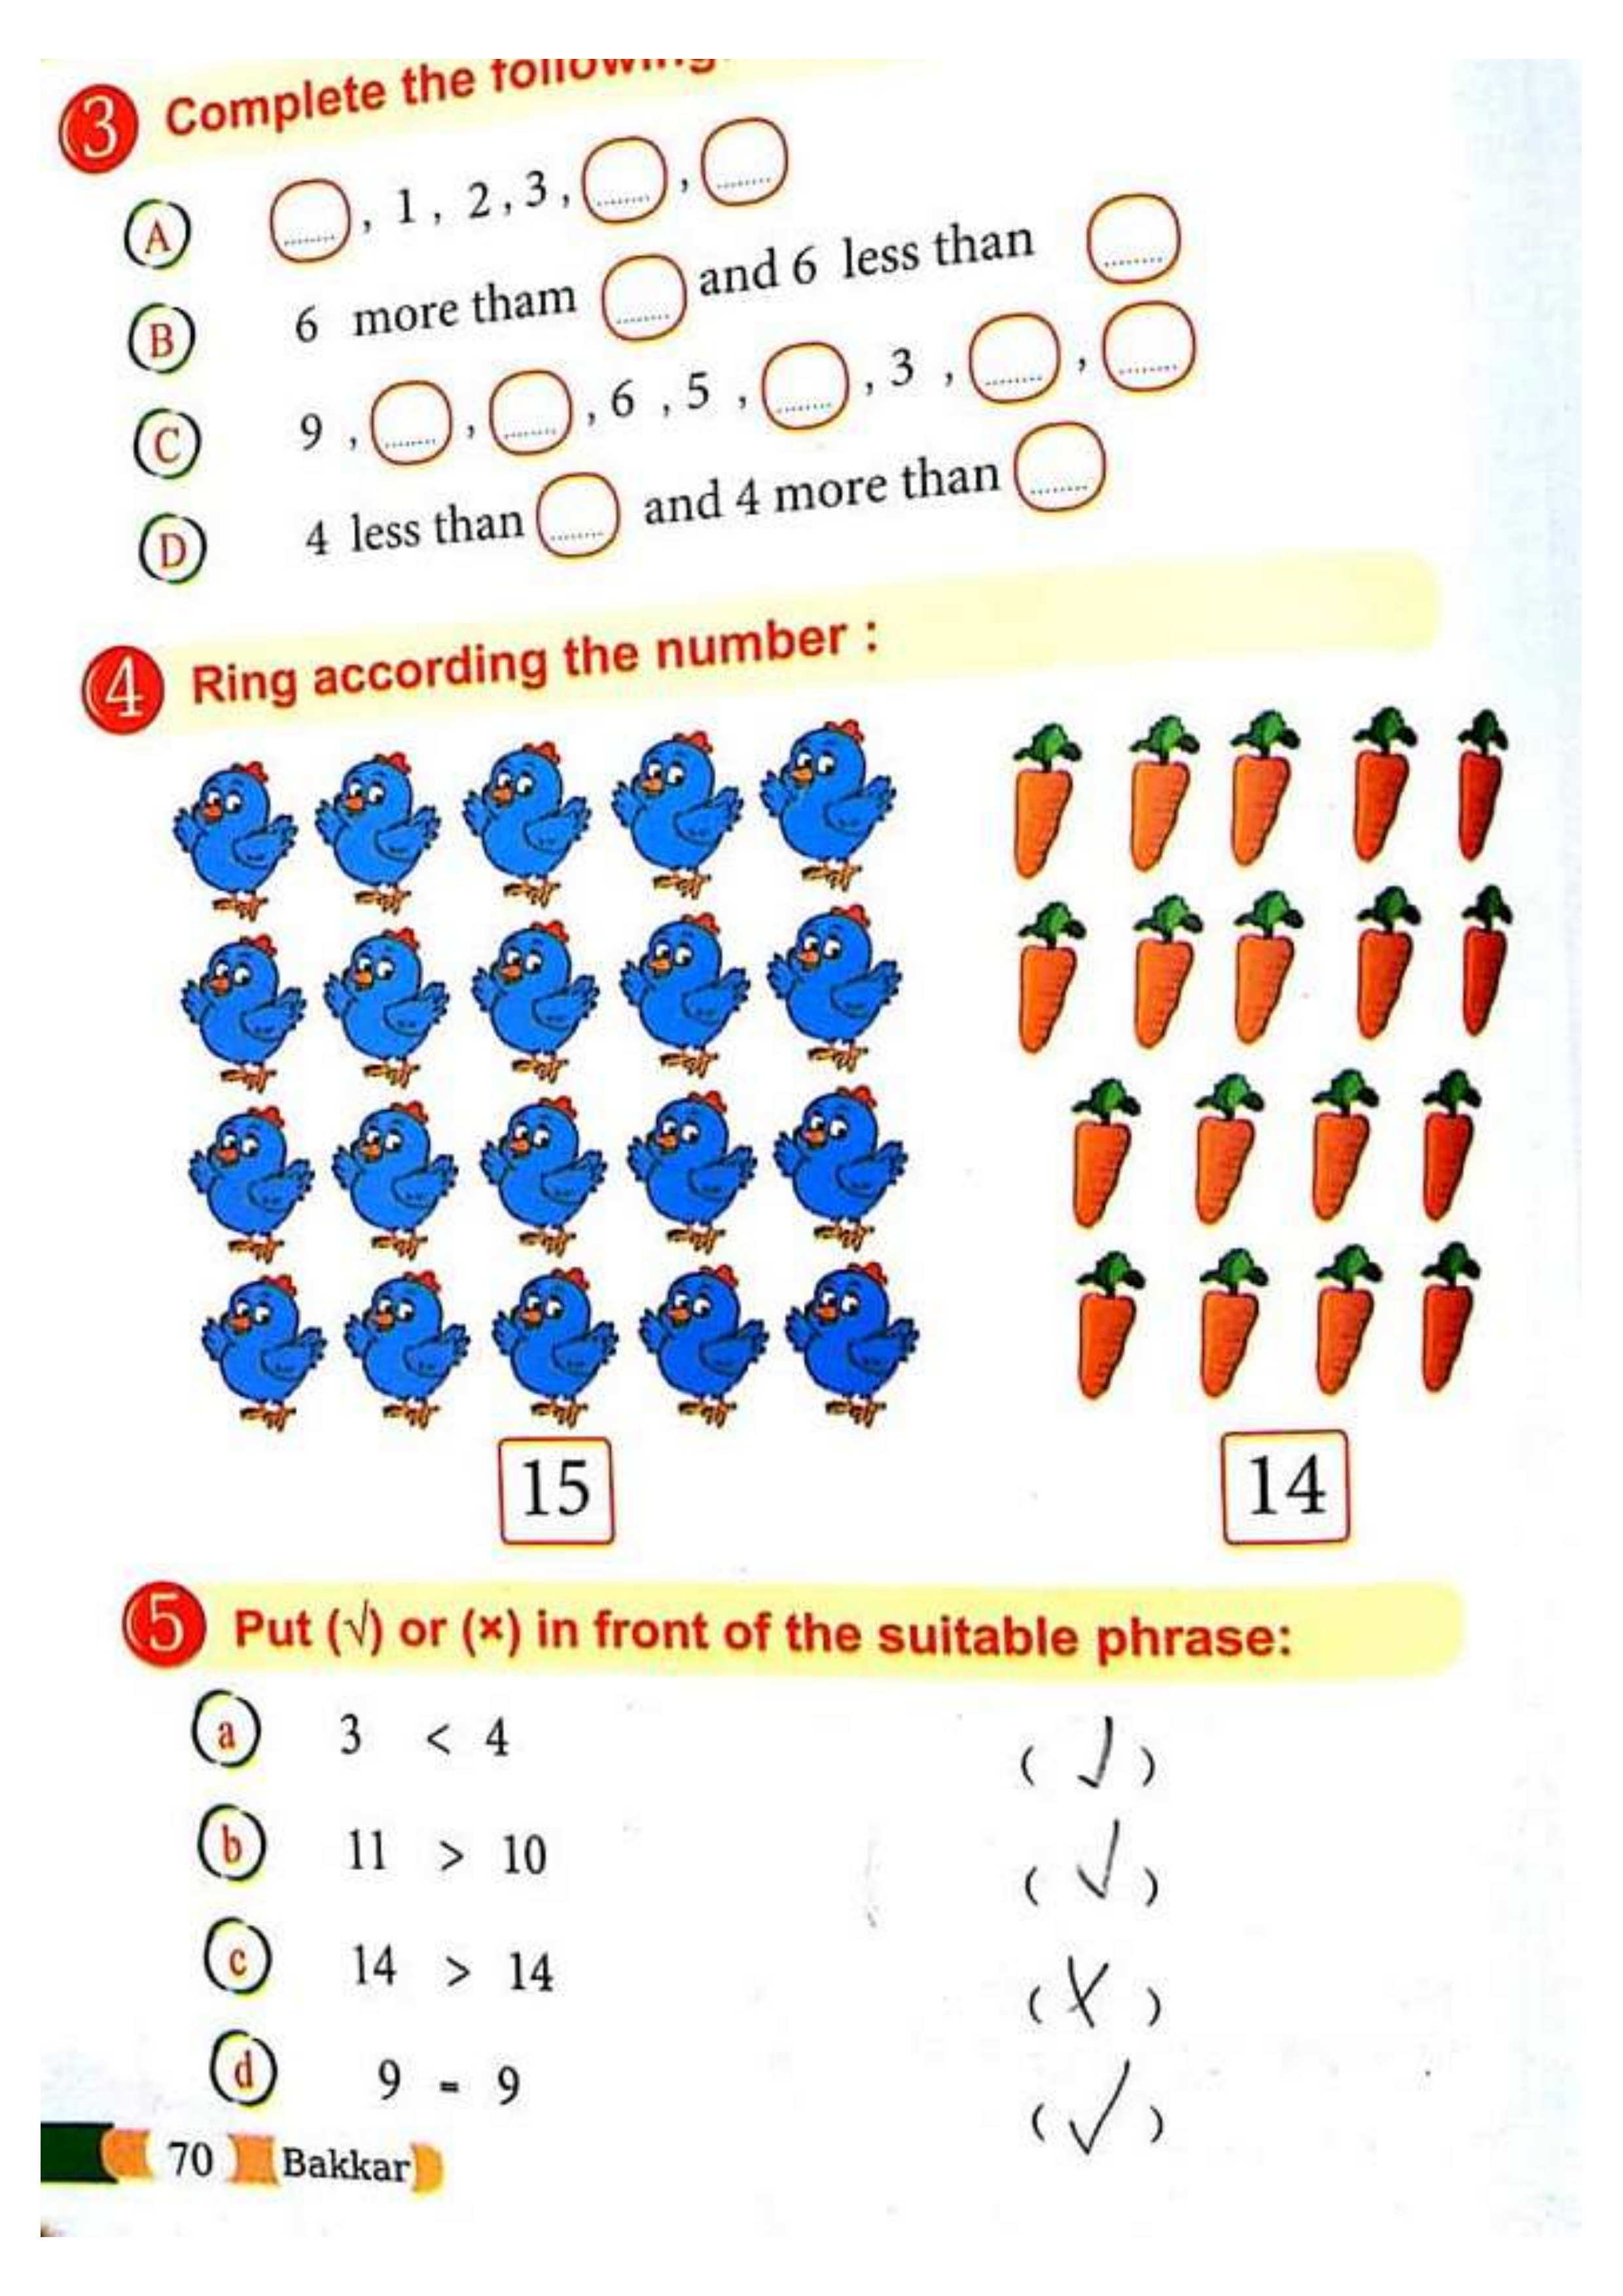 3 Complete the following
A ........ , 1 , 2 , 3 , ........ , ........
B 6 more tham ........ and 6 less than ........
C 9 , ........ , ........ , 6 , 5 , ........ , 3 , ........ , ........
D 4 less than ........ and 4 more than ........
4 Ring according the number :
15 14
5 Put (√) or (×) in front of the suitable phrase:
a 3 < 4 ( √ )
b 11 > 10 ( √ )
c 14 > 14 ( X )
d 9 = 9 ( √ )
70 Bakkar